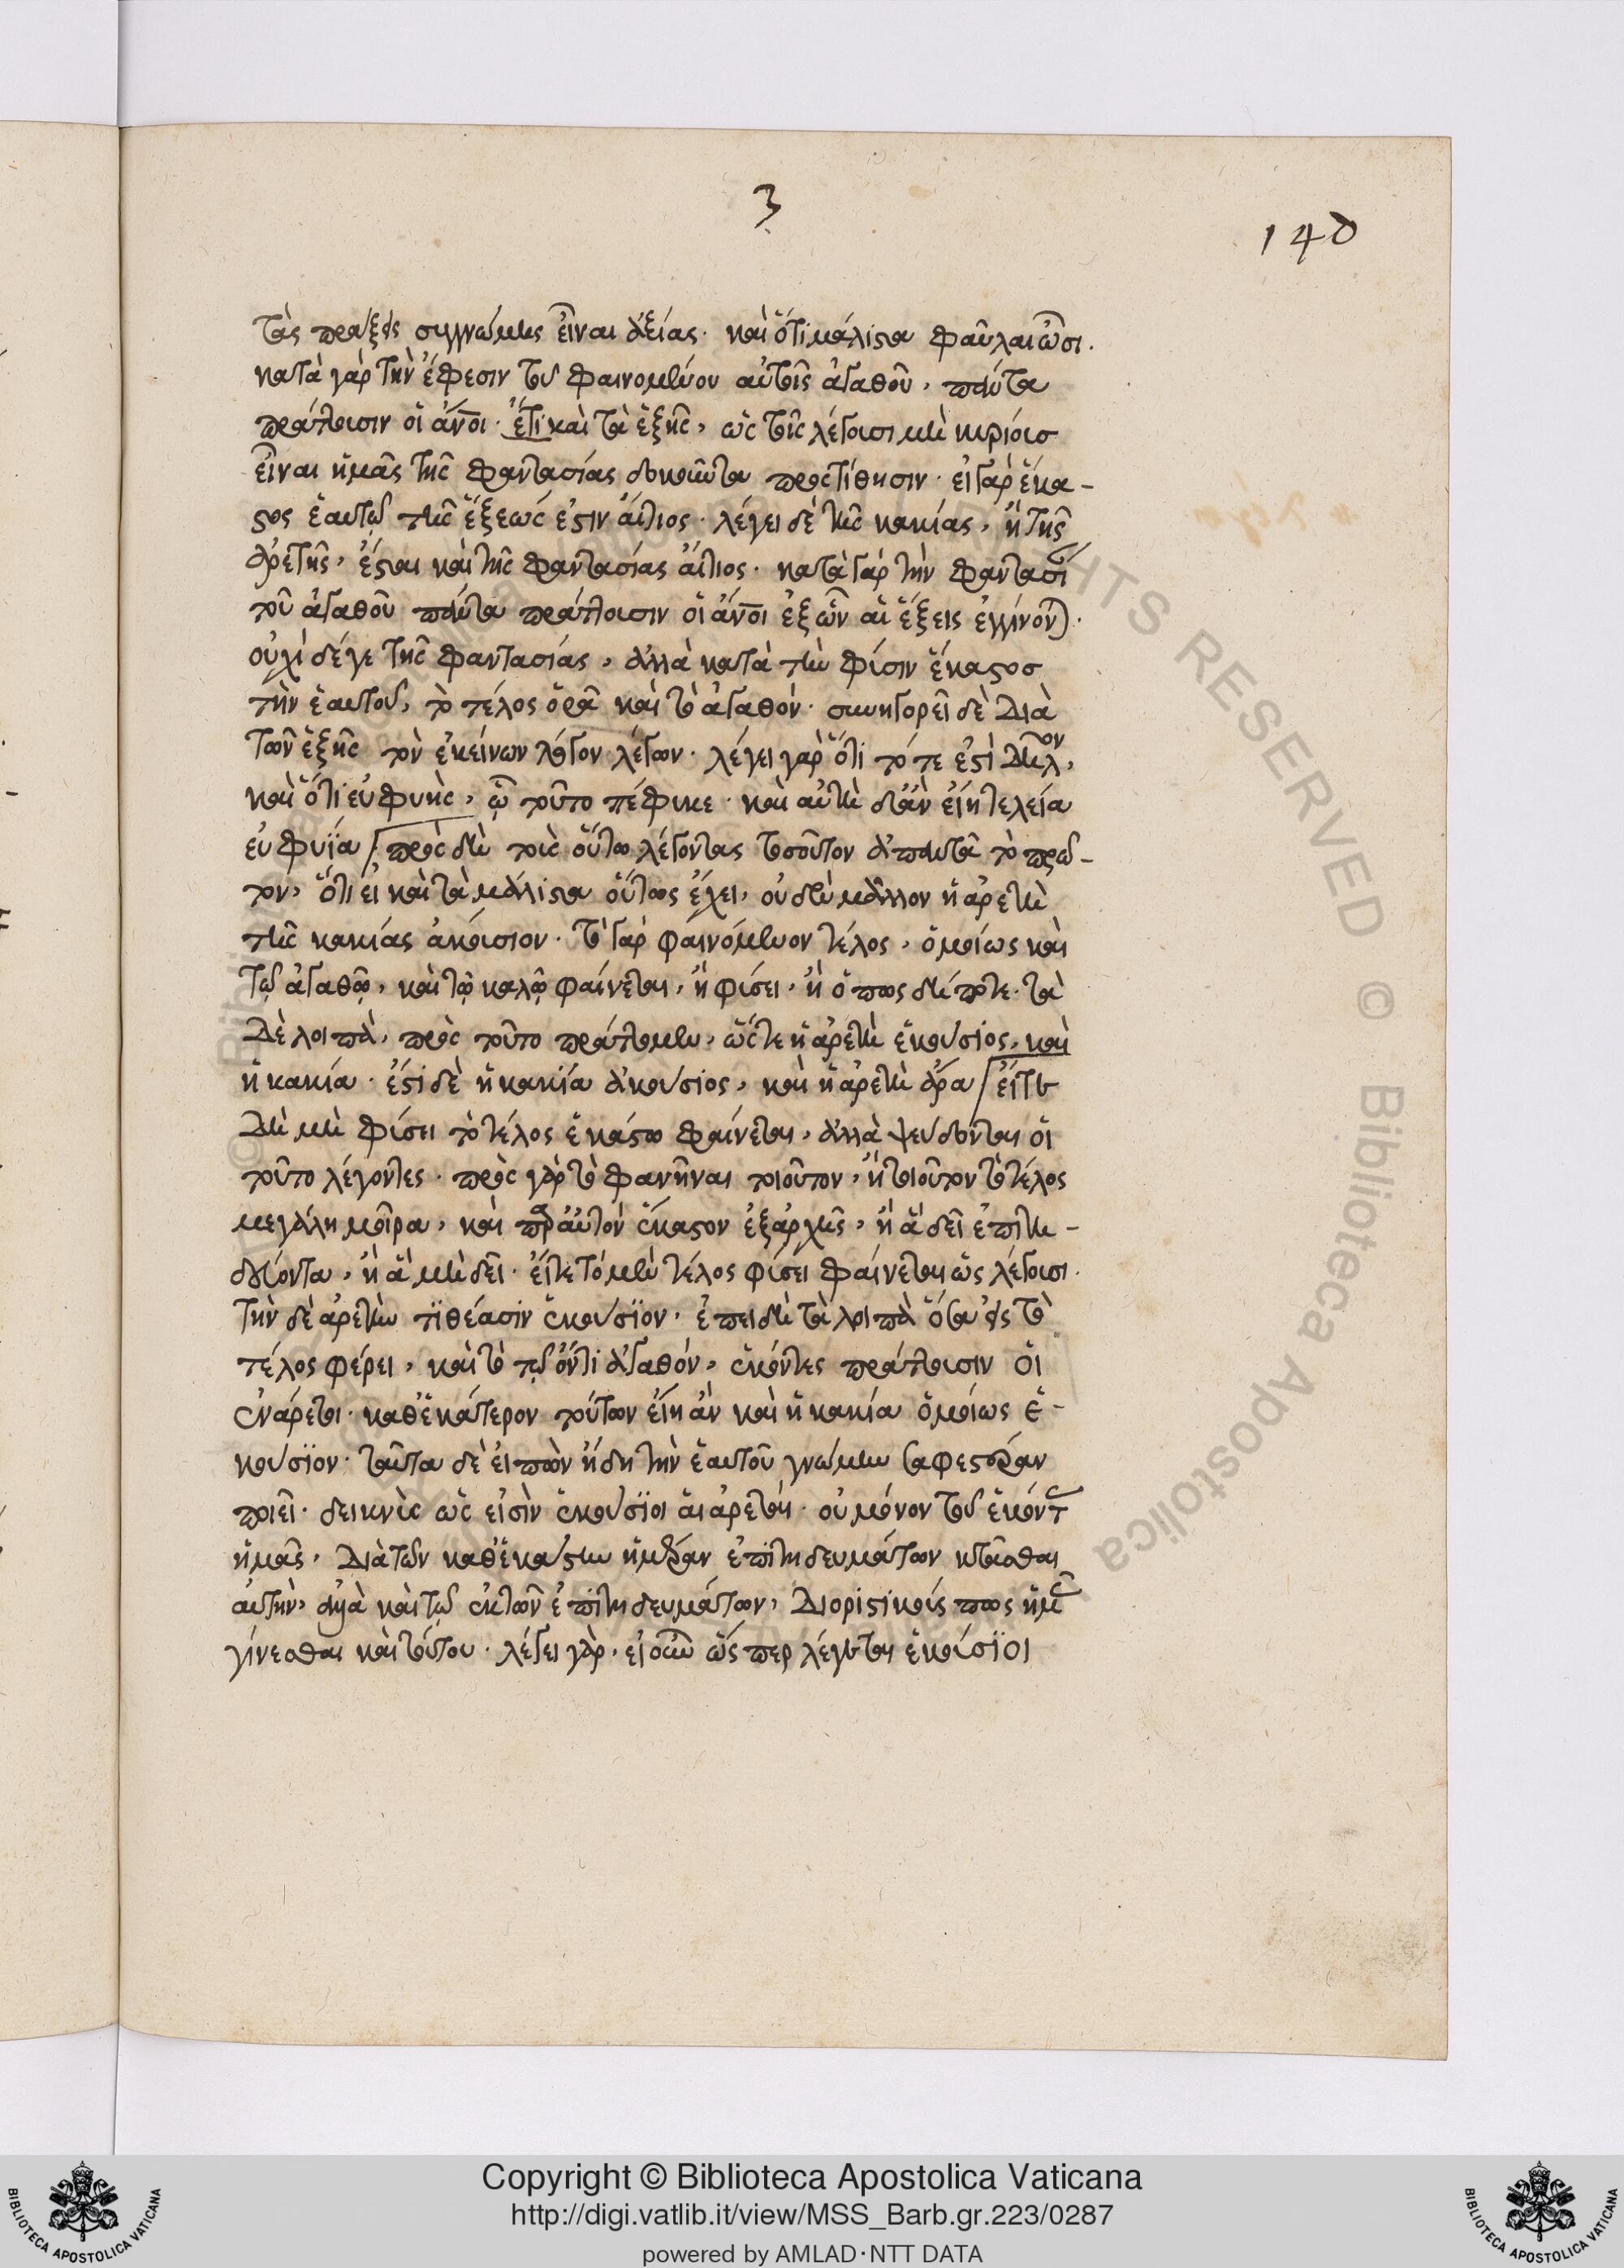 3
140
τὰς πράξεις συγγνώμης εἶναι ἀξίας· καὶ ὅτι μάλιστα φαῦλαι ὦσι.
κατὰ γὰρ τὴν ἔφεσιν τοῦ φαινομένου αὐτοῖς ἀγαθοῦ, πάντα
πράττουσιν οἱ ἄνοι· ἔτι καὶ τὰ ἑξῆς, ὡς τοῖς λέγουσι μὴ κυρίους
εἶναι ἡμᾶς τῆς φαντασίας δοκοῦντα προστίθησιν· εἰ γὰρ ἕκα-
στος ἑαυτῷ τῆς ἕξεώς ἐστιν αἴτιος· λέγει δὲ τῆς κακίας, ἢ τῆς
ἀρετῆς, ἔσται καὶ τῆς φαντασίας αἴτιος· κατὰ γὰρ τὴν φαντασί
τοῦ ἀγαθοῦ πάντα πράττουσιν οἱ ἄνοι ἐξ ὧν αἱ ἕξεις ἐγγίνον).
οὐχὶ δέ γε τῆς φαντασίας, ἀλλὰ κατὰ τὴν φύσιν ἕκαστος
τὴν ἑαυτοῦ, τὸ τέλος ὁρᾷ καὶ τὸ ἀγαθόν· συνηγορεῖ δὲ διὰ
τῶν ἑξῆς τὸν ἐκείνων λόγον λέγων· λέγει γὰρ ὅτι τό τε ἐστὶ
καὶ ὅτι εὐφυὴς, ᾧ τοῦτο πέφυκε· καὶ αὐτὴ ἂν εἴη τελεία
εὐφυΐα πρὸς δὴ τοὺς οὕτω λέγοντας τοσοῦτον ἀπαντᾷ τὸ πρῶ-
τον, ὅτι εἰ καὶ τὰ μάλιστα οὕτως ἔχει, οὐδὲν μᾶλλον ἡ ἀρετὴ
τῆς κακίας ἀκούσιον· τὸ γὰρ φαινόμενον τέλος, ὁμοίως καὶ
τῷ ἀγαθῷ, καὶ τῷ καλῷ φαίνεται, ἢ φύσει, ἢ ὅπως δήποτε· τὰ
δὲ λοιπὰ, πρὸς τοῦτο πράττομεν, ὥστε ἡ ἀρετὴ ἑκούσιος, καὶ
ἡ κακία· ἔστι δὲ ἡ κακία ἀκούσιος, καὶ ἡ ἀρετὴ ἄρα εἴτε
δὴ μὴ φύσει τὸ τέλος ἑκάστῳ φαίνεται, ἀλλὰ ψεύδονται οἱ
τοῦτο λέγοντες· πρὸς γὰρ τὸ φανῆναι τοιοῦτον, ἢ τοιοῦτον τὸ τέλος
μεγάλη μοῖρα, καὶ παρ' αὐτὸν ἕκαστον ἐξ ἀρχῆς, ἢ ἃ δεῖ ἐπιτη-
δεύοντα, ἢ ἃ μὴ δεῖ· εἴτε τὸ μὲν τέλος φύσει φαίνεται ὡς λέγουσι.
τὴν δὲ ἀρετὴν τιθέασιν ἑκούσιον· ἐπειδὴ τὰ λοιπὰ ὅσα εἰς τὸ
τέλος φέρει, καὶ τὸ τῷ ὄντι ἀγαθόν, ἑκόντες πράττουσιν οἱ
ἐνάρετοι· καθ' ἑκάτερον τούτων εἴη ἂν καὶ ἡ κακία ὁμοίως ἑ-
κούσιον· ταῦτα δὲ εἰπὼν ἤδη τὴν ἑαυτοῦ γνώμην σαφεστέραν
ποιεῖ· δεικνὺς ὡς εἰσὶν ἑκούσιοι αἱ ἀρεταί· οὐ μόνον τοῦ ἑκόντ
ἡμᾶς, διὰ τῶν καθ' ἑκάστην ἡμέραν ἐπιτηδευμάτων κτᾶσθαι
αὐτὴν, ἀλλὰ καὶ τῷ ἐκ τῶν ἐπιτηδευμάτων, διοριστικούς πως ἡμ
γίνεσθαι καὶ τούτου· λέγει γὰρ, εἰ οὖν ὥσπερ λέγεται ἑκούσιοι
Copyright © Biblioteca Apostolica Vaticana
http://digi.vatlib.it/view/MSS_Barb.gr.223/0287
powered by AMLAD·NTT DATA